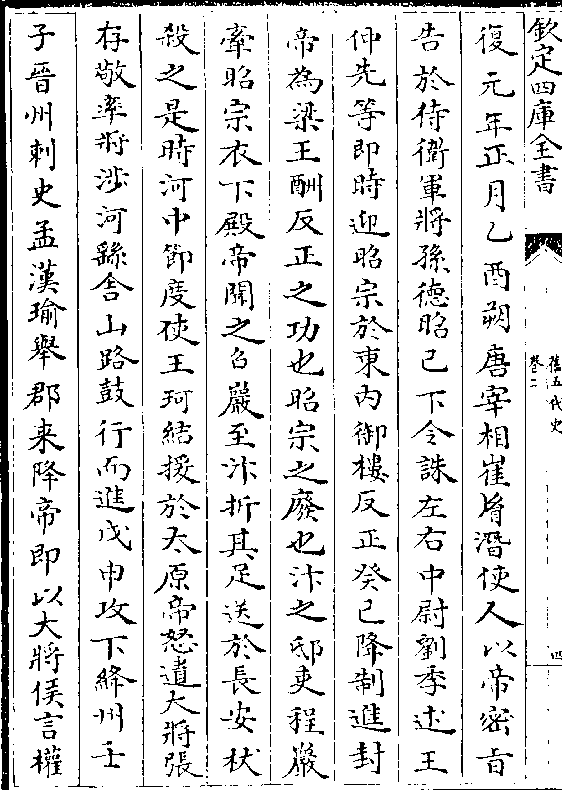 欽定四庫全書
舊五代史
卷二
四
復元年正月乙酉朔唐宰相崔𦙍潛使人以帝密旨
告於侍衛軍將孫德昭已下令誅左右中尉劉季述王
仲先等即時迎昭宗於東內御樓反正癸巳降制進封
帝為梁王酬反正之功也昭宗之廢也汴之邸吏程巖
牽昭宗衣下殿帝聞之召巖至汴折其足送於長安杖
殺之是時河中節度使王珂結援於太原帝怒遣大將張
存敬率將涉河繇含山路鼓行而進戊申攻下絳州壬
子晉州刺史孟漢瑜舉郡來降帝即以大將侯言權